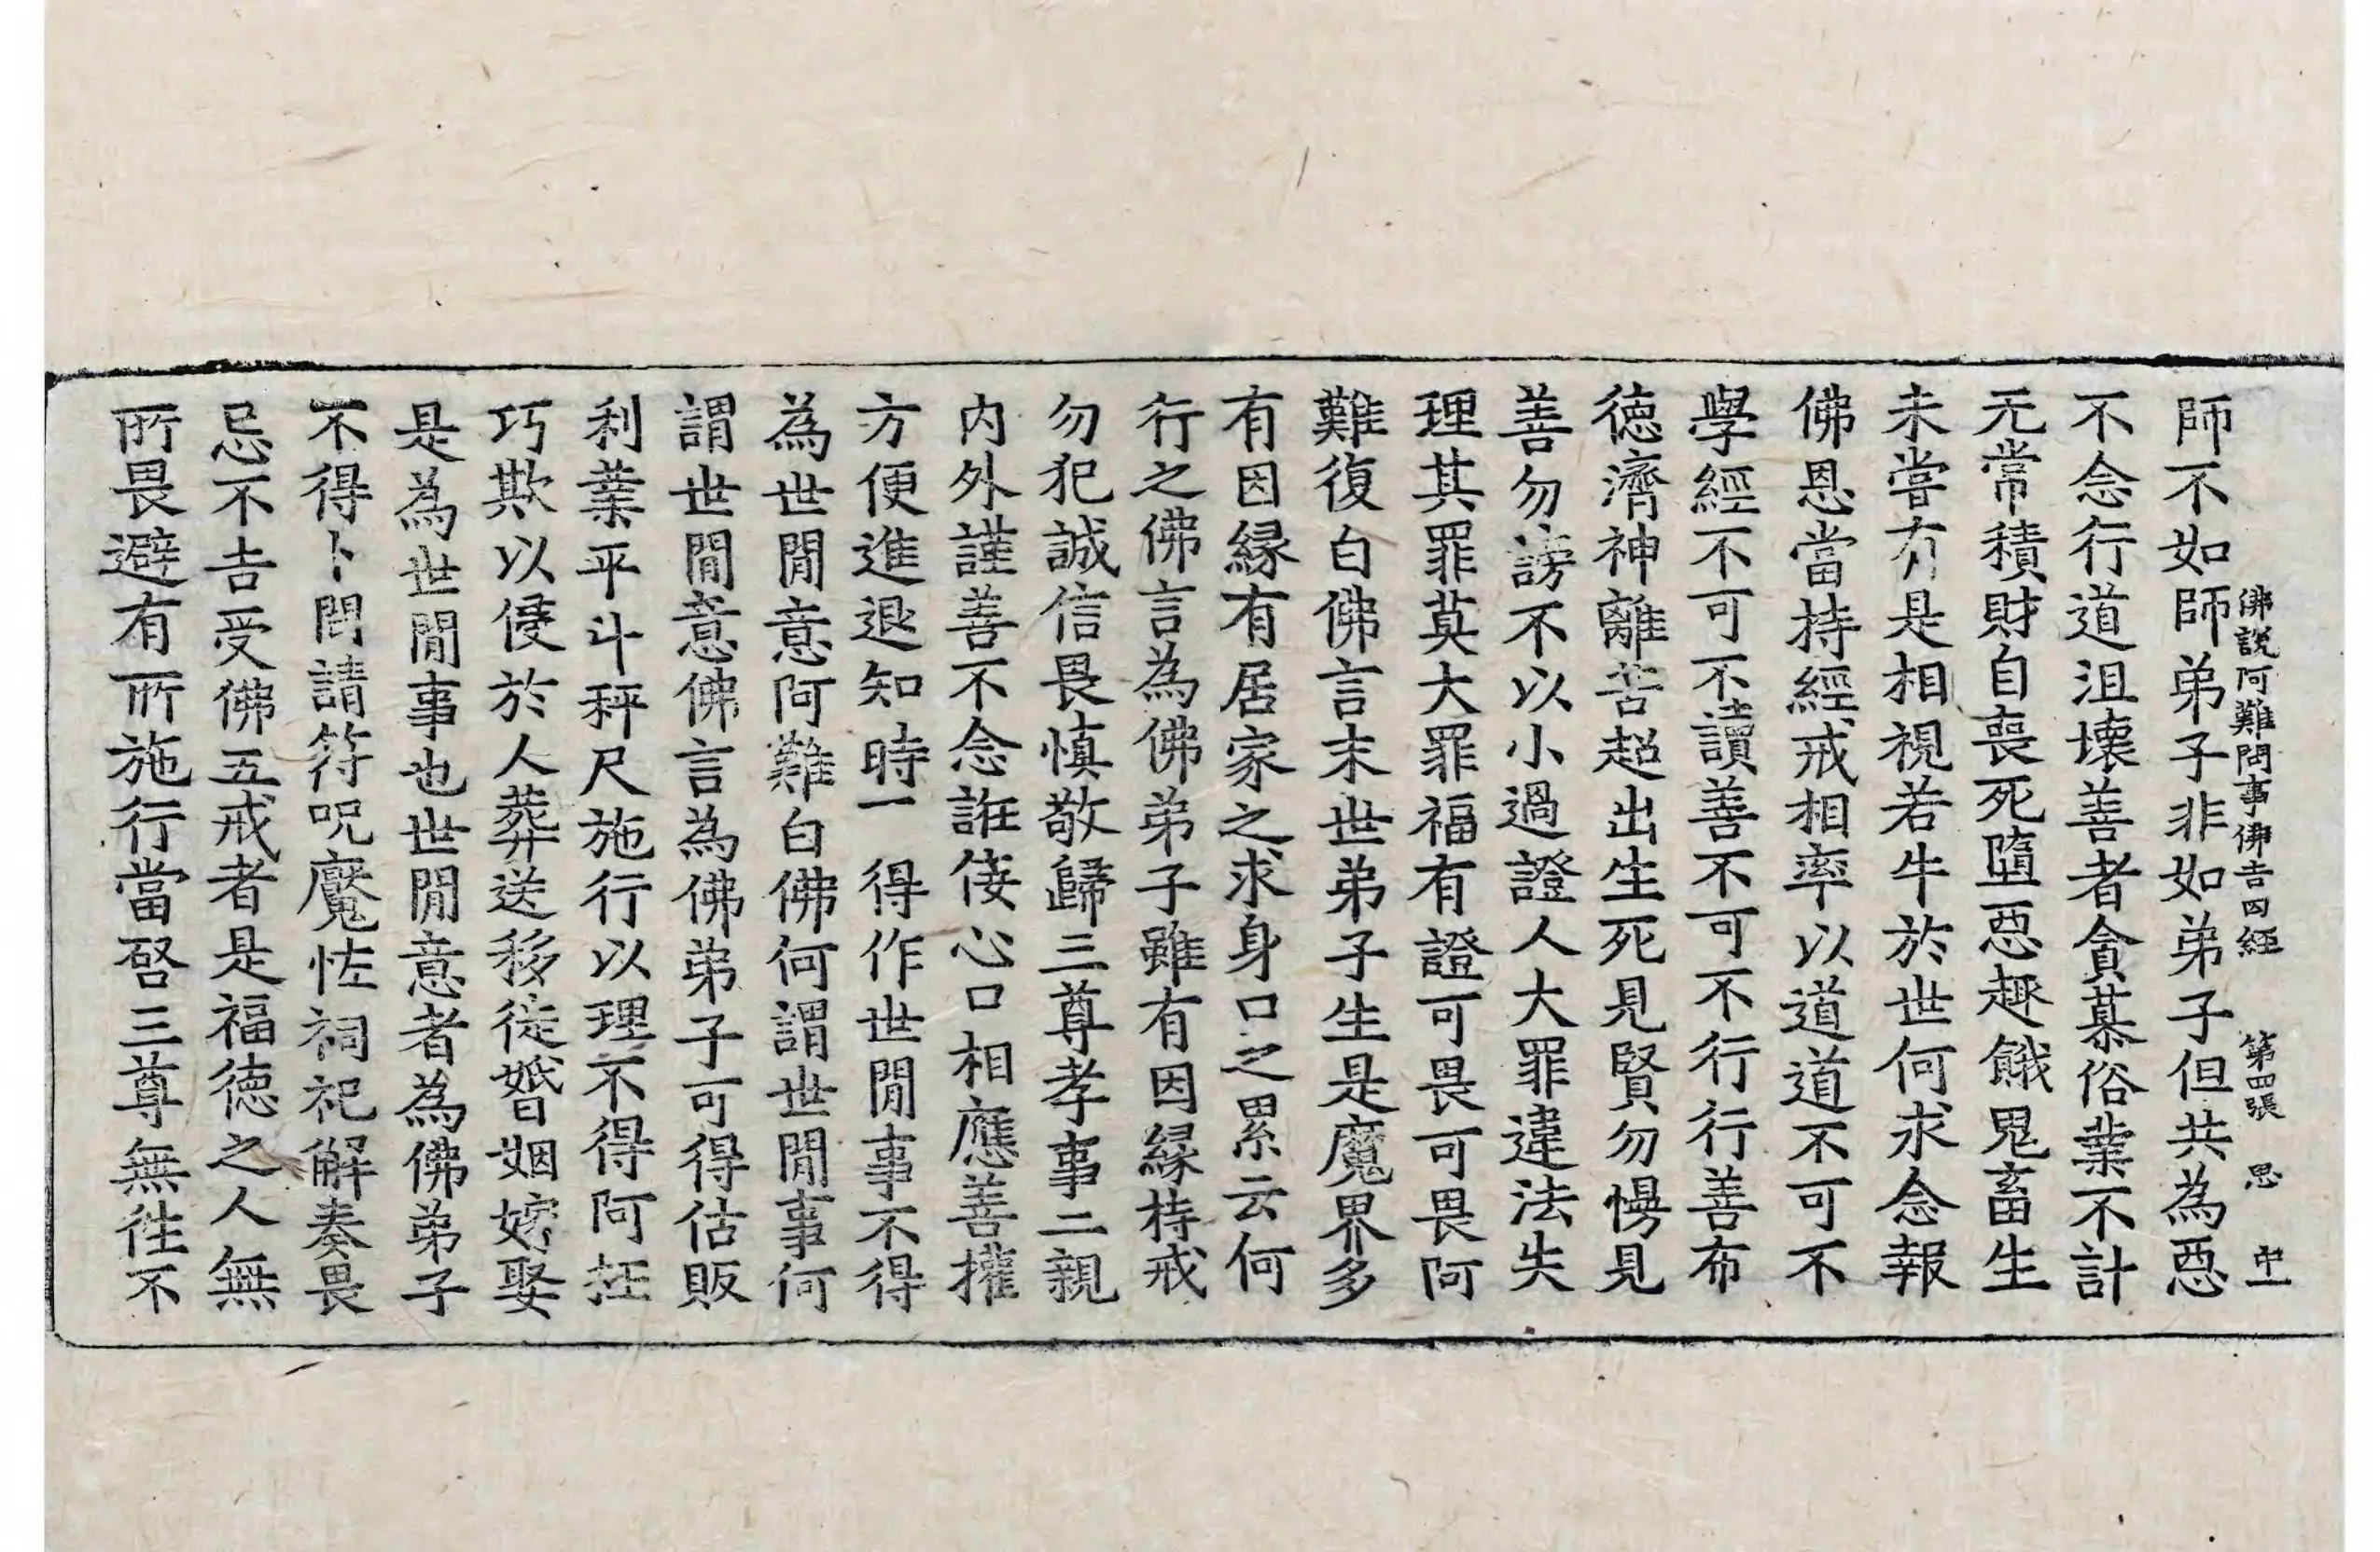 佛說阿難問事佛吉凶經 第四張 思
師不如師弟子非如弟子但共為惡
不念行道沮壞善者貪慕俗業不計
无常積財自喪死墮惡趣餓鬼畜生
未嘗有是相視若牛於世何求念報
佛恩當持經戒相率以道道不可不
學經不可不讀善不可不行行善布
德濟神離苦超出生死見賢勿慢見
善勿謗不以小過證人大罪違法失
理其罪莫大罪福有證可畏可畏阿
難復白佛言末世弟子生是魔界多
有因緣有居家之求身口之累云何
行之佛言為佛弟子雖有因緣持戒
勿犯誠信畏慎敬歸三尊孝事二親
內外謹善不念誑佞心口相應善權
方便進退知時一得作世閒事不得
為世閒意阿難白佛何謂世閒事何
謂世閒意佛言為佛弟子可得估販
利業平斗秤尺施行以理不得阿抂
巧欺以侵於人葬送移徙婚姻嫁娶
是為世閒事也世閒意者為佛弟子
不得卜問請符呪魘怪祠祀解奏畏
忌不吉受佛五戒者是福德之人無
所畏避有所施行當啓三尊無往不